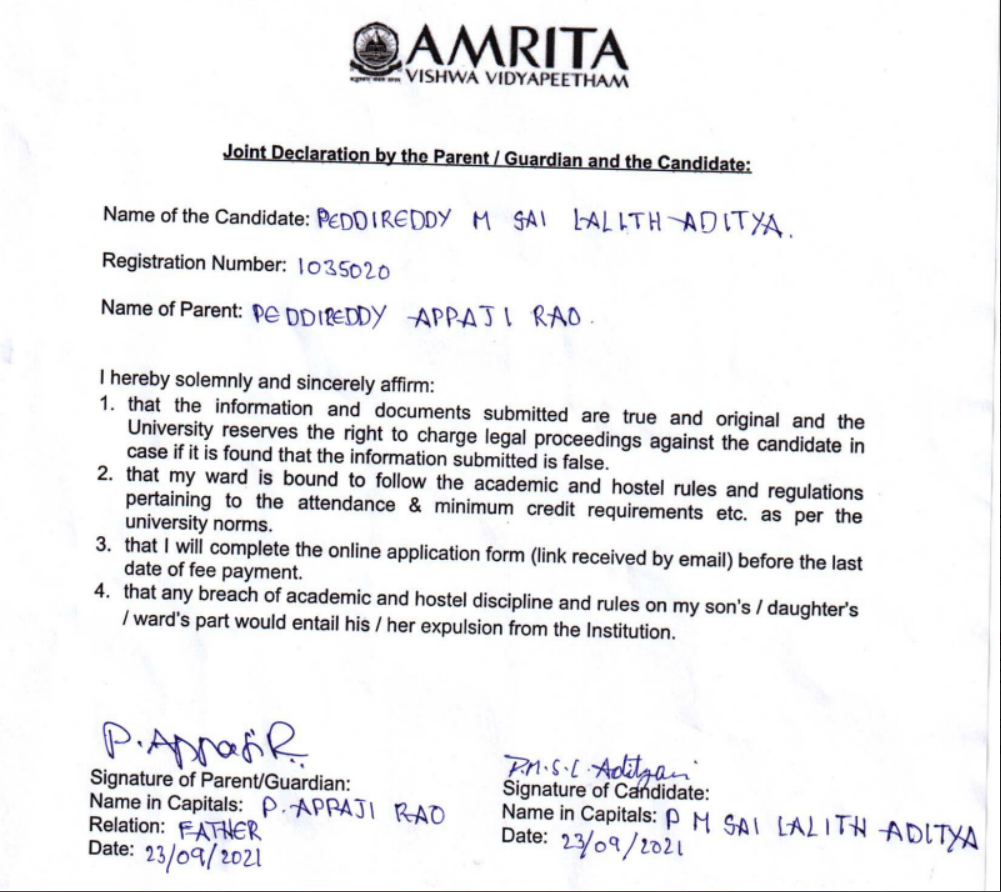 AMRITA
VISHWA VIDYAPEETHAM
Joint Declaration by the Parent / Guardian and the Candidate:
Name of the Candidate: PEDDIREDDY M SAI LALITH ADITYA.
Registration Number: 1035020
Name of Parent: PEDDIREDDY APPAJI RAO.
I hereby solemnly and sincerely affirm:
1. that the information and documents submitted are true and original and the
University reserves the right to charge legal proceedings against the candidate in
case if it is found that the information submitted is false.
2. that my ward is bound to follow the academic and hostel rules and regulations
pertaining to the attendance & minimum credit requirements etc. as per the
university norms.
3. that I will complete the online application form (link received by email) before the last
date of fee payment.
4. that any breach of academic and hostel discipline and rules on my son's / daughter's
/ ward's part would entail his / her expulsion from the Institution.
P. Appaji R
Signature of Parent/Guardian:
Name in Capitals: P. APPAJI RAO
Relation: FATHER
Date: 23/09/2021
P.M.S.L.
Signature of Candidate:
Name in Capitals: P M SAI LALITH ADITYA
Date: 23/09/2021